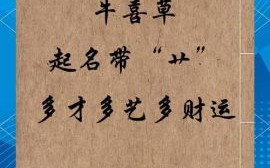 牛喜草
起名带“艹”
多才多艺多财运